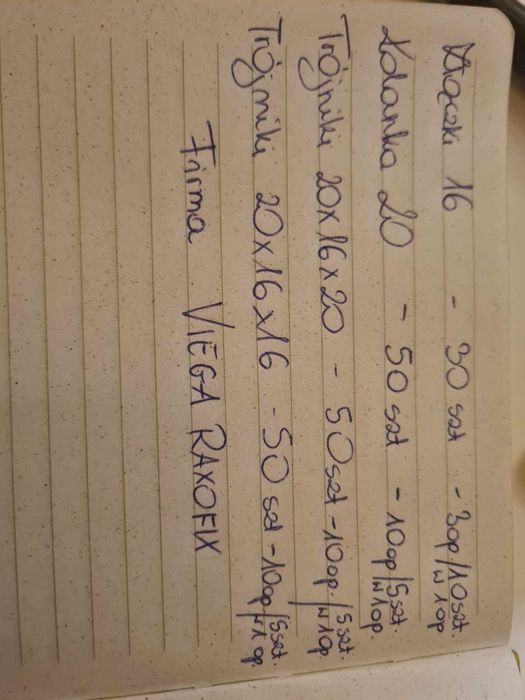 Złączki 16 - 30 szt - 3op/10szt w 1op
Kolanka 20 - 50 szt - 10op/5szt. w 1op
Trójniki 20x16x20 - 50szt - 10op./5szt. w 1op.
Trójniki 20x16x16 - 50 szt - 10op/5szt w 1 op.
Firma VIEGA RAXOFIX